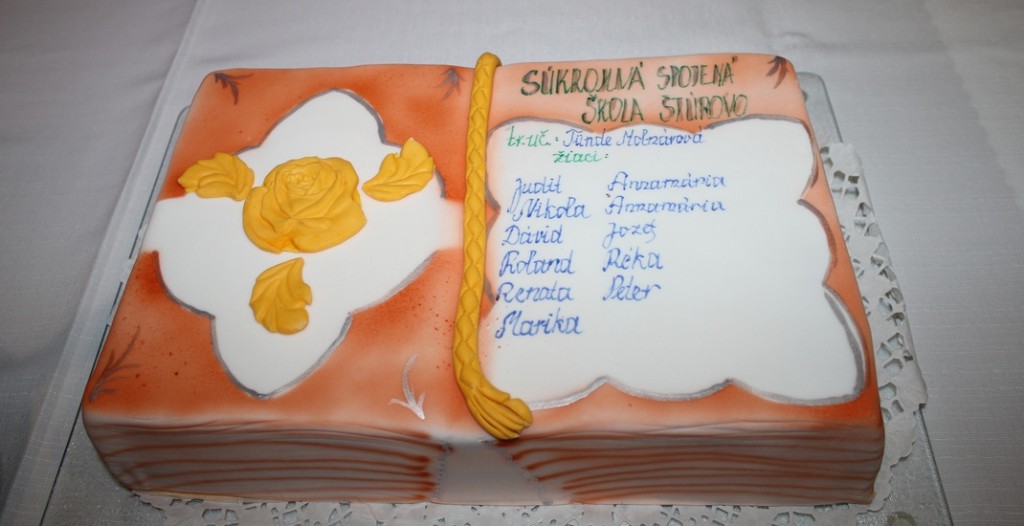 SÚKROMNÁ SPOJENÁ
ŠKOLA ŠTÚROVO
tr.uč.: Tünde Molnárová
žiaci:
Judit Annamária
Nikola Annamária
Dávid Jozef
Roland Réka
Renata Peter
Marika